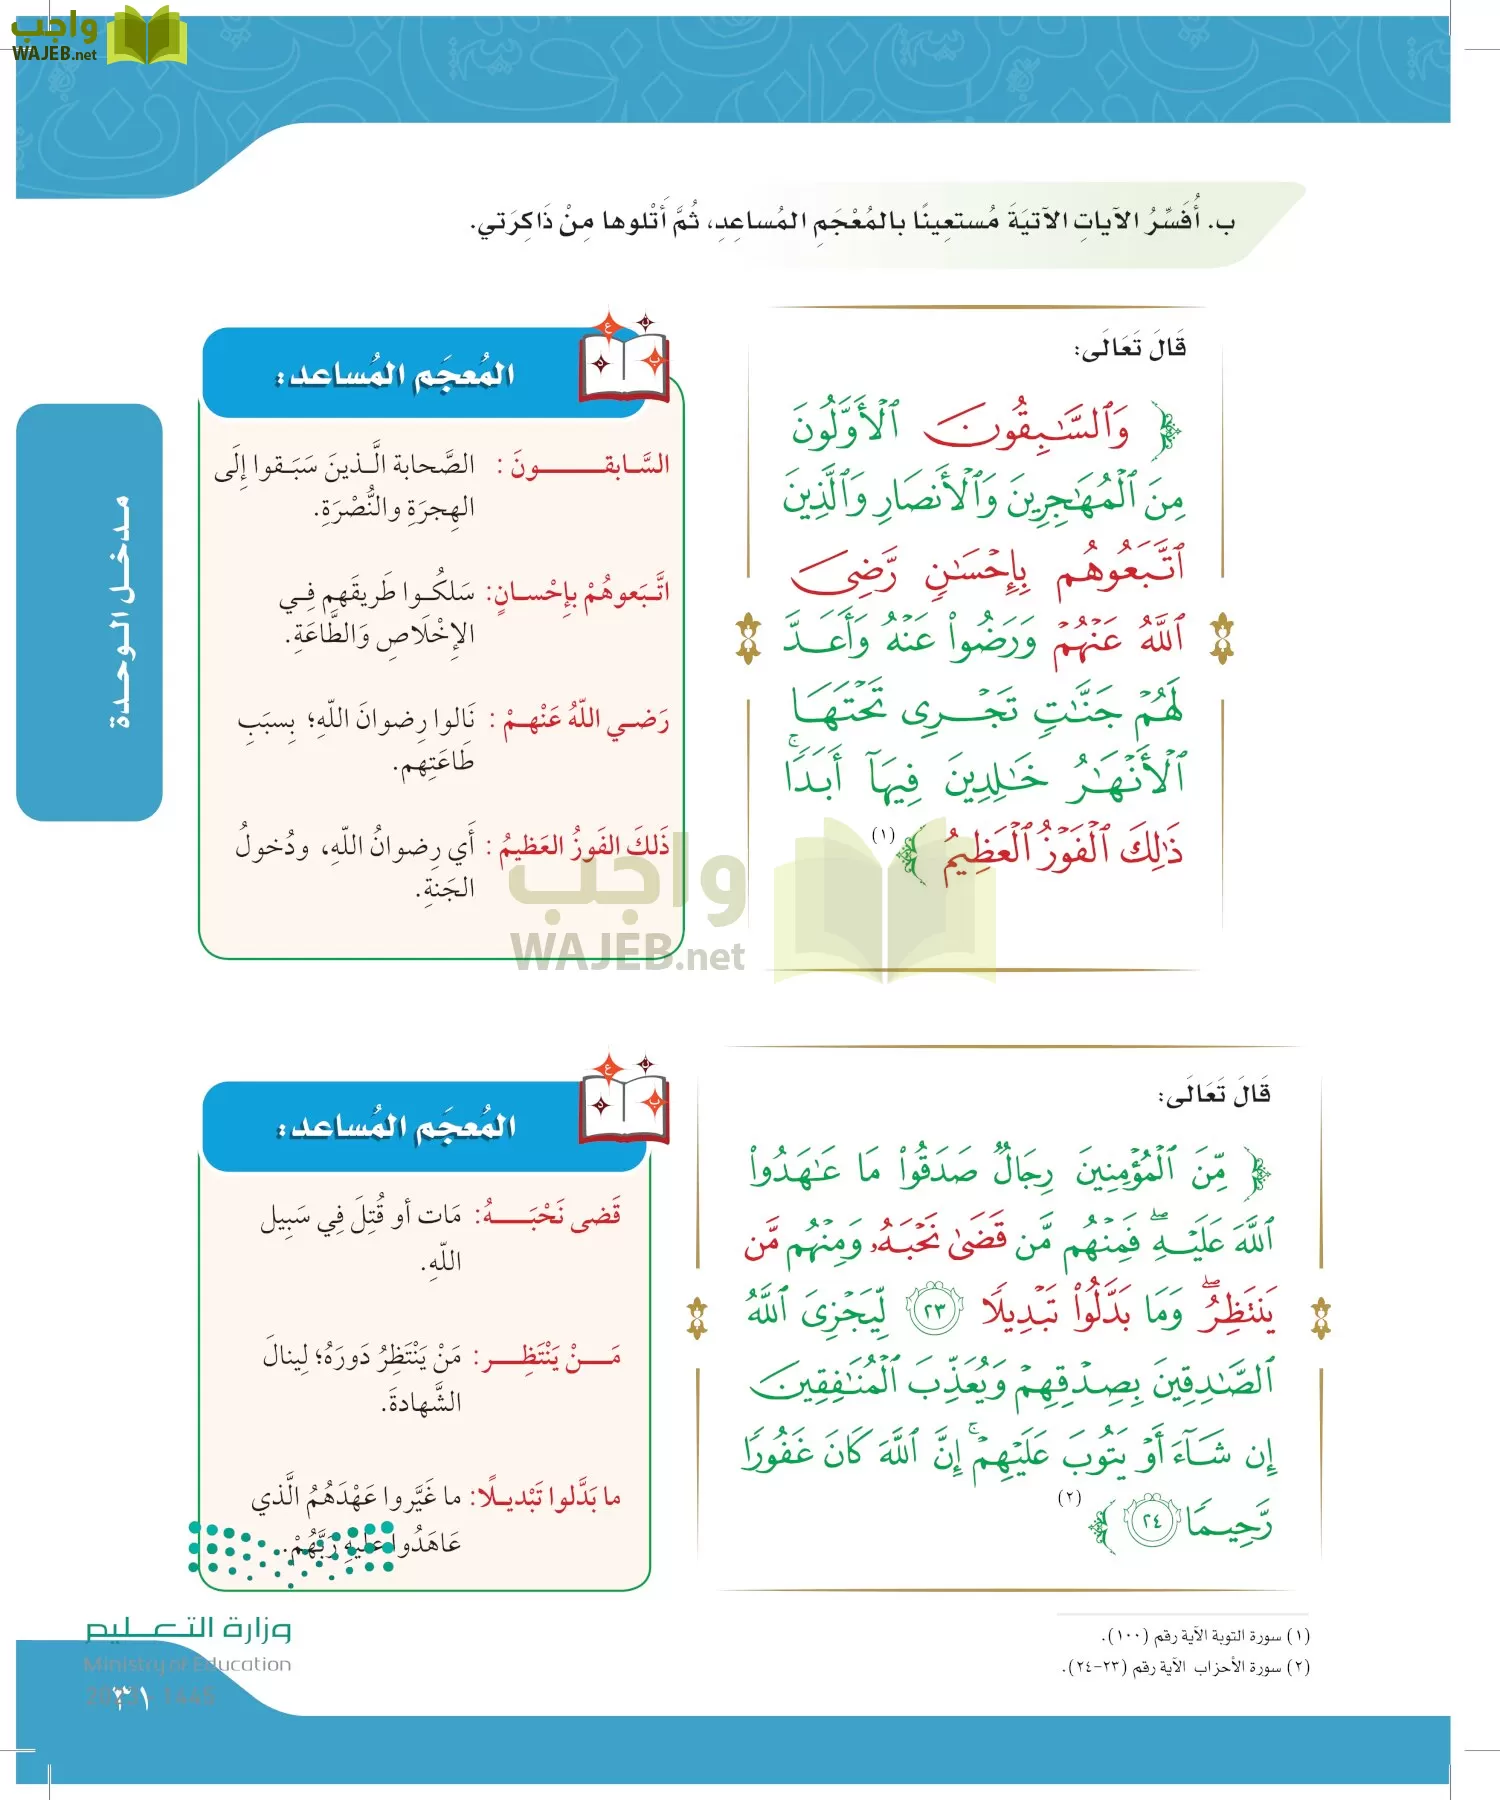 واجب
WAJEB.net
ب. أُفَسِّرُ الآياتِ الآتيَةَ مُستَعِينًا بالمُعْجَمِ المُساعِدِ، ثُمَّ أَتْلوها مِنْ ذَاكِرَتي.
قَالَ تَعَالَى:
﴿ وَٱلسَّٰبِقُونَ ٱلْأَوَّلُونَ
مِنَ ٱلْمُهَٰجِرِينَ وَٱلْأَنصَارِ وَٱلَّذِينَ
ٱتَّبَعُوهُم بِإِحْسَٰنٍ رَّضِىَ
ٱللَّهُ عَنْهُمْ وَرَضُوا۟ عَنْهُ وَأَعَدَّ
لَهُمْ جَنَّٰتٍ تَجْرِى تَحْتَهَا
ٱلْأَنْهَٰرُ خَٰلِدِينَ فِيهَآ أَبَدًا ۚ
ذَٰلِكَ ٱلْفَوْزُ ٱلْعَظِيمُ ﴾ (١)
المُعجَم المُساعد:
السَّابقــــونَ : الصَّحابة الَّـذينَ سَبَـقوا إِلَى
الهِجرَةِ والنُّصْرَةِ.
اتَّـبَعوهُمْ بإِحْسـانٍ: سَلكُـوا طَريقَهم فِـي
الإِخْلَاصِ وَالطَّاعَةِ.
رَضـي اللّهُ عَنْهـمْ : نَالوا رِضوانَ اللّهِ؛ بِسبَبِ
طَاعَتِهم.
ذَلكَ الفَوزُ العَظيمُ : أَي رِضوانُ اللّهِ، ودُخولُ
الجَنةِ.
واجب
WAJEB.net
قَالَ تَعَالَى:
﴿ مِّنَ ٱلْمُؤْمِنِينَ رِجَالٌ صَدَقُوا۟ مَا عَٰهَدُوا۟
ٱللَّهَ عَلَيْهِ ۖ فَمِنْهُم مَّن قَضَىٰ نَحْبَهُۥ وَمِنْهُم مَّن
يَنتَظِرُ ۖ وَمَا بَدَّلُوا۟ تَبْدِيلًا ٢٣ لِّيَجْزِىَ ٱللَّهُ
ٱلصَّٰدِقِينَ بِصِدْقِهِمْ وَيُعَذِّبَ ٱلْمُنَٰفِقِينَ
إِن شَآءَ أَوْ يَتُوبَ عَلَيْهِمْ ۚ إِنَّ ٱللَّهَ كَانَ غَفُورًا
رَّحِيمًا ٢٤ ﴾ (٢)
المُعجَم المُساعد:
قَضى نَحْبَــهُ: مَات أو قُتِلَ فِي سَبِيل
اللّهِ.
مَــنْ يَنْتَظِــر: مَنْ يَنْتَظِرُ دَورَهُ؛ لِينالَ
الشَّهادةَ.
ما بَدَّلوا تَبْديـلًا: ما غَيَّروا عَهْدَهُمُ الَّذي
عَاهَدُوا عليهِ رَبَّهُمْ.
مدخل الوحدة
(١) سورة التوبة الآية رقم (١٠٠).
(٢) سورة الأحزاب الآية رقم (٢٣-٢٤).
وزارة التعليم
Ministry of Education
2023 - 1445
٣١